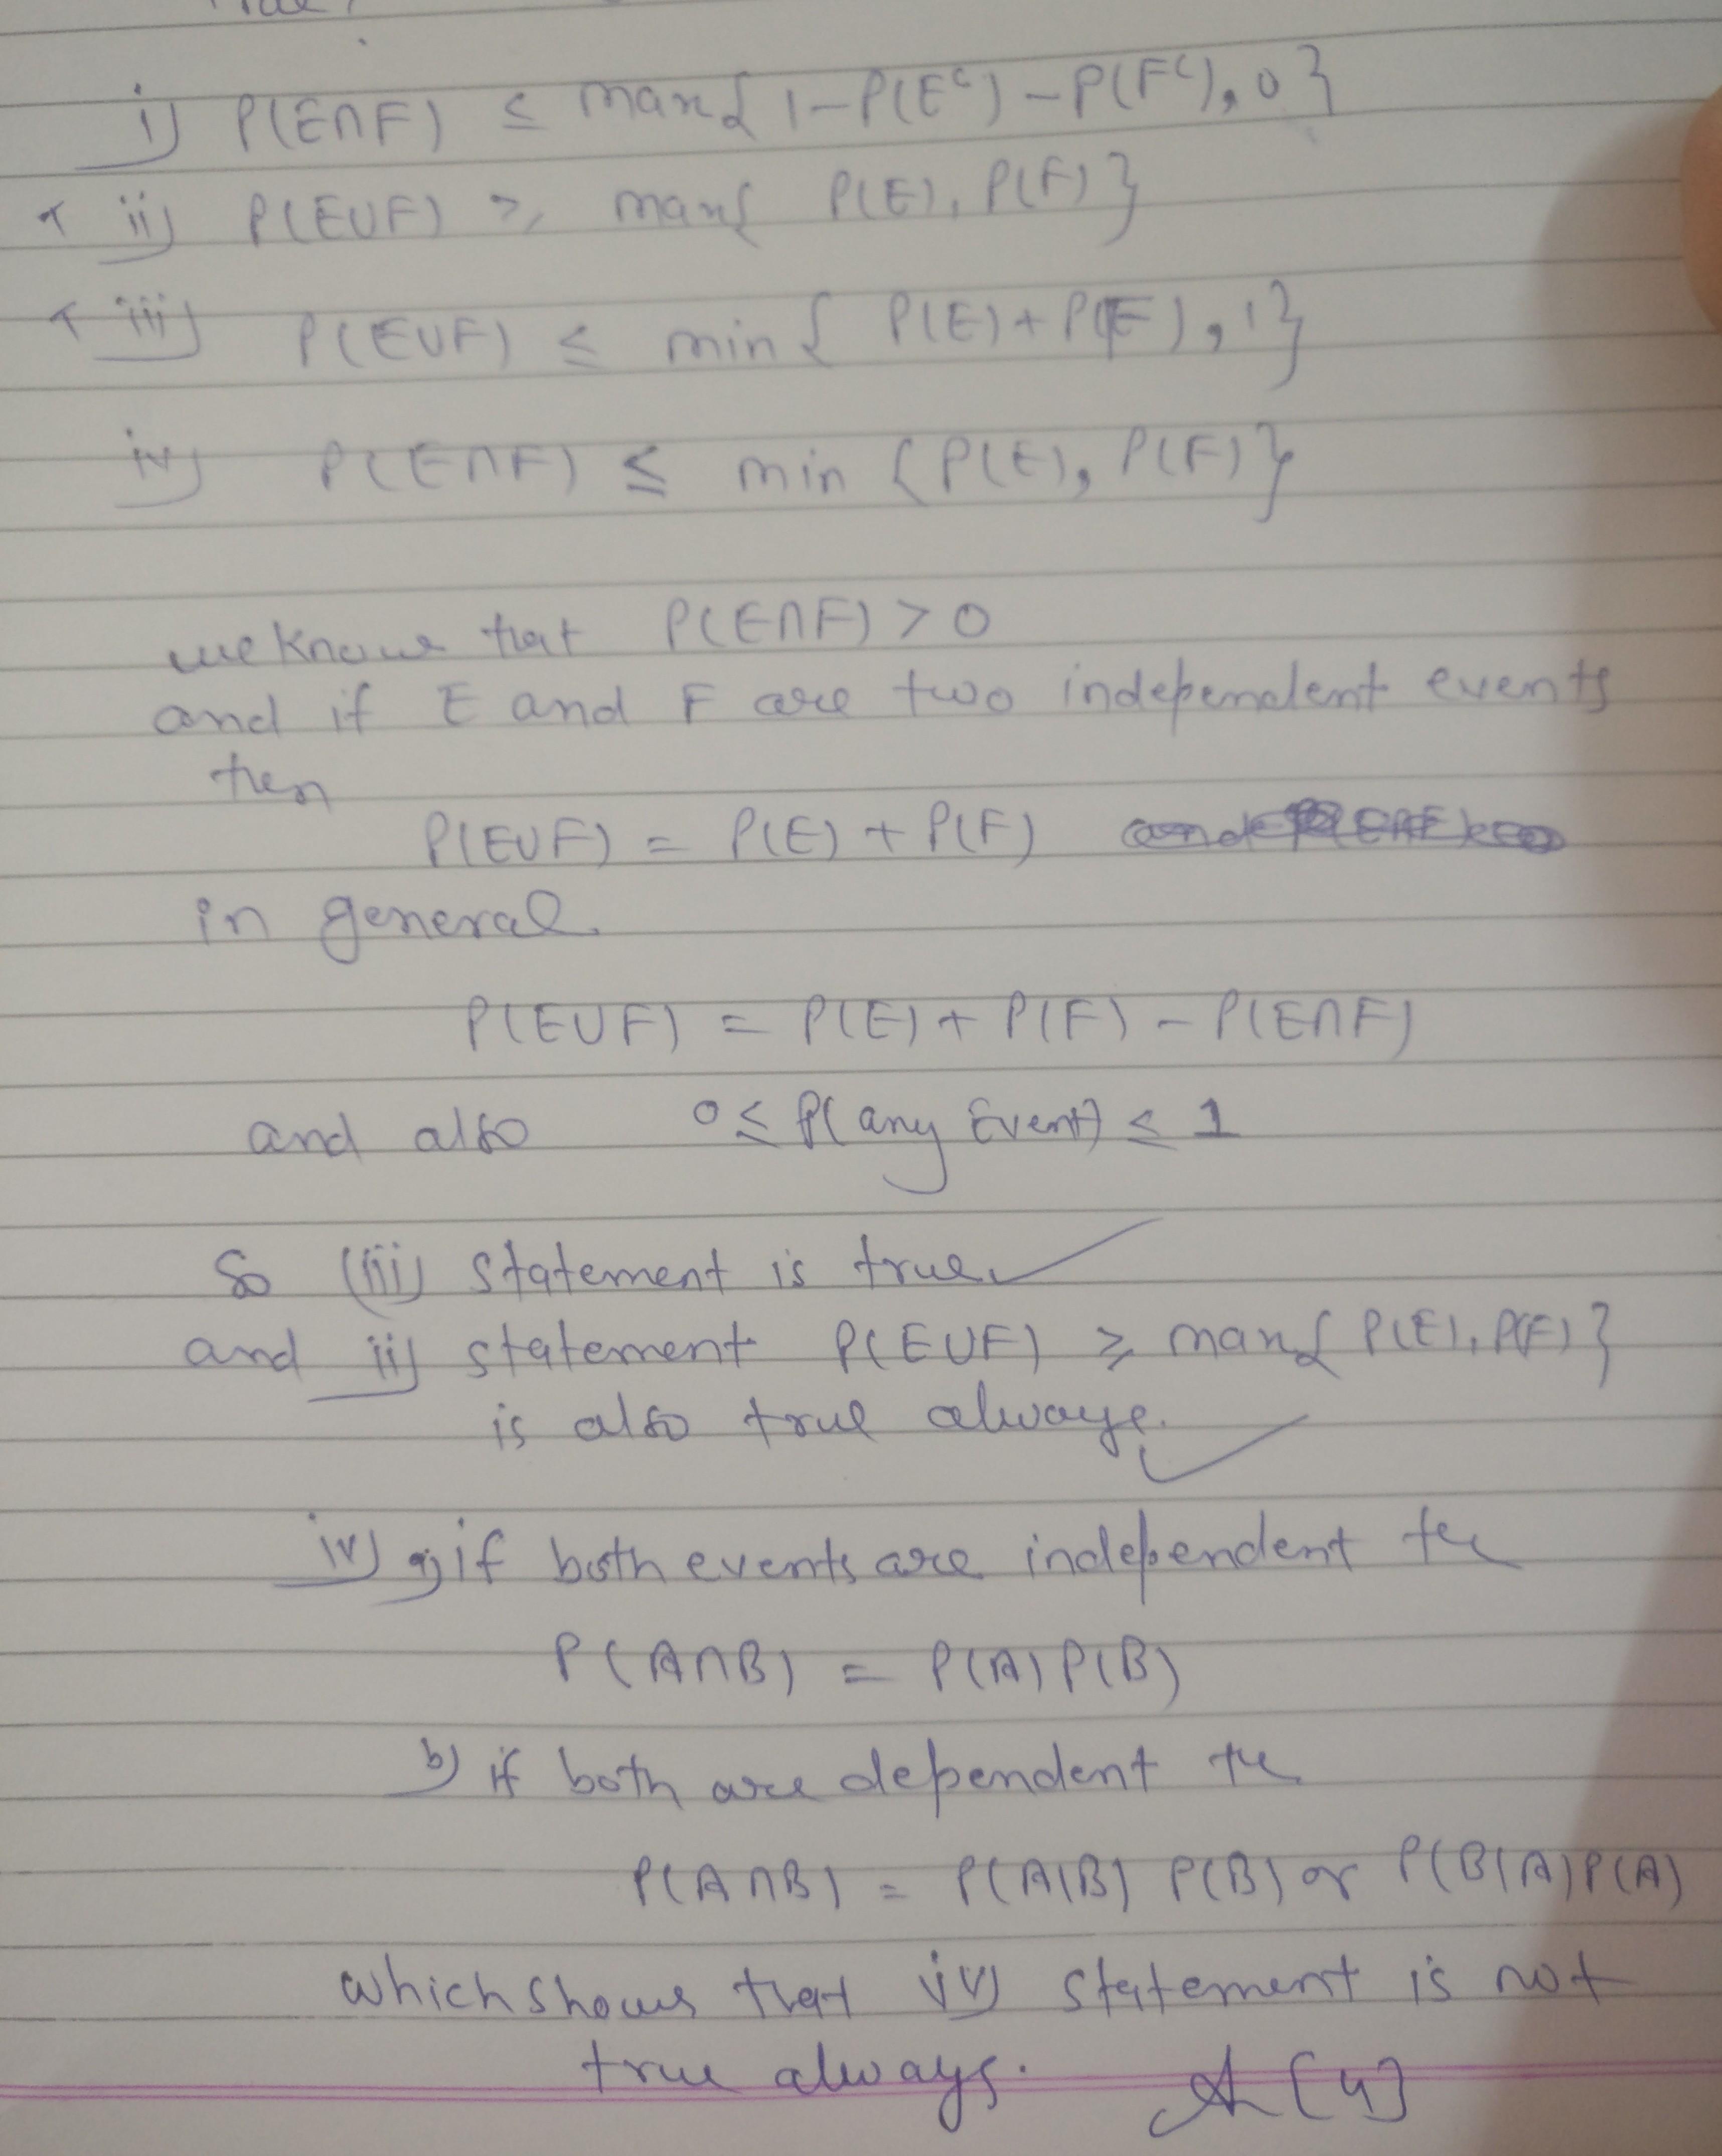 i) P(E∩F) ≤ max{ 1-P(Eᶜ) - P(Fᶜ), 0 }
ii) P(E∪F) ≥ max{ P(E), P(F) }
iii) P(E∪F) ≤ min{ P(E) + P(F), 1 }
iv) P(E∩F) ≤ min {P(E), P(F)}
we know that P(E∩F) > 0
and if E and F are two independent events
then
P(E∪F) = P(E) + P(F)
in general
P(E∪F) = P(E) + P(F) - P(E∩F)
and also 0 ≤ P(any Event) ≤ 1
So (iii) statement is true ✓
and ii) statement P(E∪F) ≥ max{ P(E), P(F) }
is also true always. ✓
iv) a) if both events are independent the
P(A∩B) = P(A) P(B)
b) if both are dependent the
P(A∩B) = P(A|B) P(B) or P(B|A) P(A)
which shows that iv) statement is not
true always. [4]